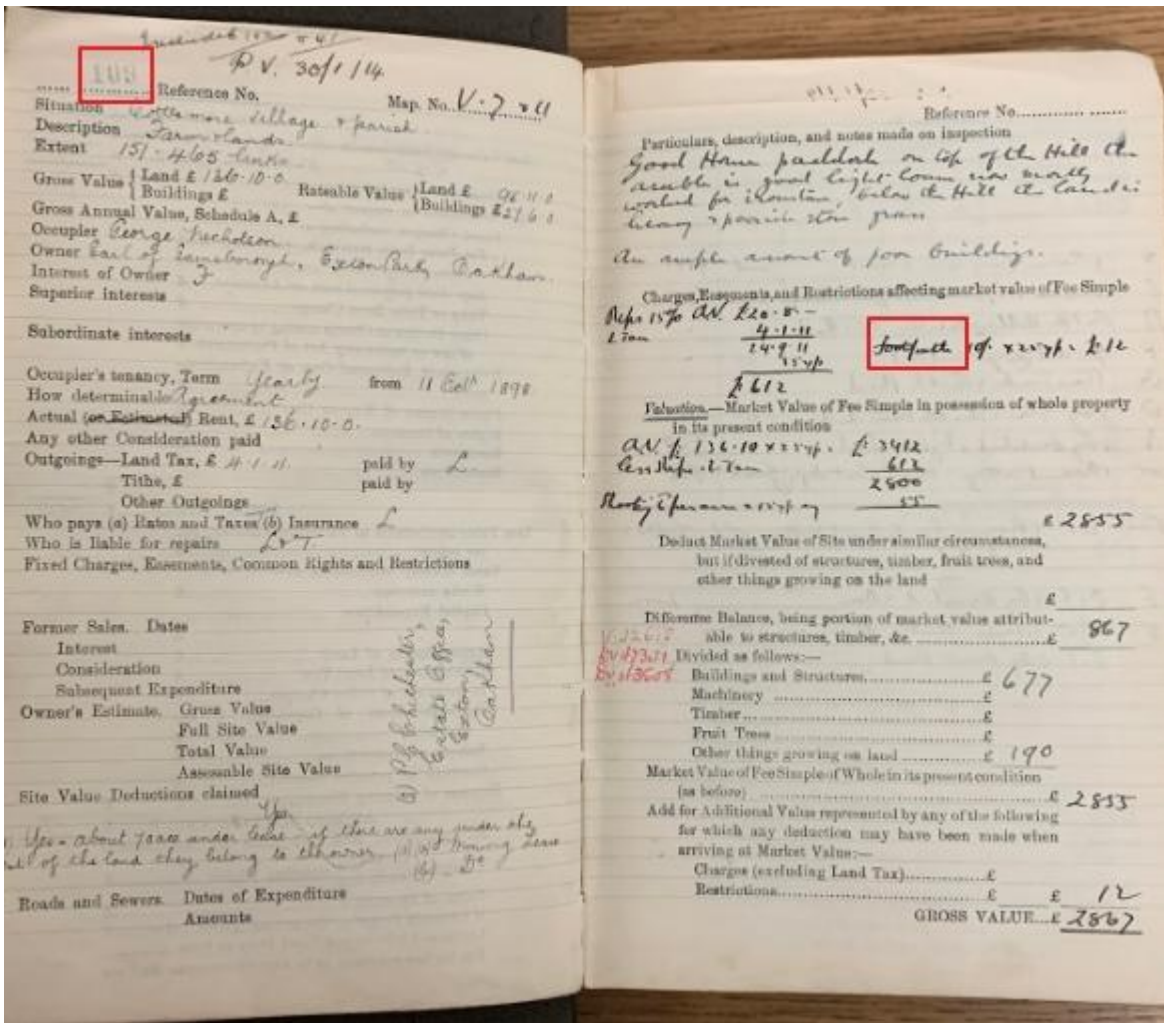 Includes
P.V. 30/1/14.
109 Reference No. Map. No. V.7 & 11
Situation Cottesmore village & parish
Description Farm & lands
Extent 151. 4605 links
Gross Value { Land £ 136-10-0 Rateable Value { Land £ 96 11 0
Buildings £ Buildings £ 21 6 0
Gross Annual Value, Schedule A, £
Occupier George Nicholson
Owner Earl of Gainsborough, Exton Park, Oakham.
Interest of Owner F
Superior interests
Subordinate interests
Occupier's tenancy, Term Yearly from 11 Octr 1898
How determinable Agreement
Actual (or Estimated) Rent, £ 136.10.0.
Any other Consideration paid
Outgoings—Land Tax, £ 4.1.11. paid by L.
Tithe, £ paid by
Other Outgoings
Who pays (a) Rates and Taxes (b) Insurance L
Who is liable for repairs L & T
Fixed Charges, Easements, Common Rights and Restrictions
Former Sales. Dates
Interest
Consideration
Subsequent Expenditure
Owner's Estimate. Gross Value
Full Site Value
Total Value
Assessable Site Value
(a) P G Chichester,
Estate Office,
Exton,
Oakham
Site Value Deductions claimed
Yes
Yes - about 70 acs under lease if there are any under the
of the land they belong to the owner. Mining Lease
(b) - Do
Roads and Sewers. Dates of Expenditure
Amounts
Reference No.
Particulars, description, and notes made on inspection
Good Home paddock on top of the Hill the
arable is good light loam now mostly
worked for ironstone, below the Hill the land is
heavy & poorish grass
An ample amount of poor buildings.
Charges, Easements, and Restrictions affecting market value of Fee Simple
Reps 15% O.V. £20.8.-
L Tax 4.1.11
24.9.11 footpath 10/- x 25 yp. £12
25 yp
£612
Valuation.—Market Value of Fee Simple in possession of whole property
in its present condition
A.V. £ 136-10 x 25 yp. £ 3412
less Reps. L Tax 612
2800
55
£ 2855
Deduct Market Value of Site under similar circumstances,
but if divested of structures, timber, fruit trees, and
other things growing on the land
£
Difference Balance, being portion of market value attribut-
able to structures, timber, &c. £ 867
Divided as follows:—
Buildings and Structures £ 677
Machinery £
Timber £
Fruit Trees £
Other things growing on land £ 190
Market Value of Fee Simple of Whole in its present condition
(as before) £ 2855
Add for Additional Value represented by any of the following
for which any deduction may have been made when
arriving at Market Value:—
Charges (excluding Land Tax) £
Restrictions £ £ 12
GROSS VALUE £ 2867